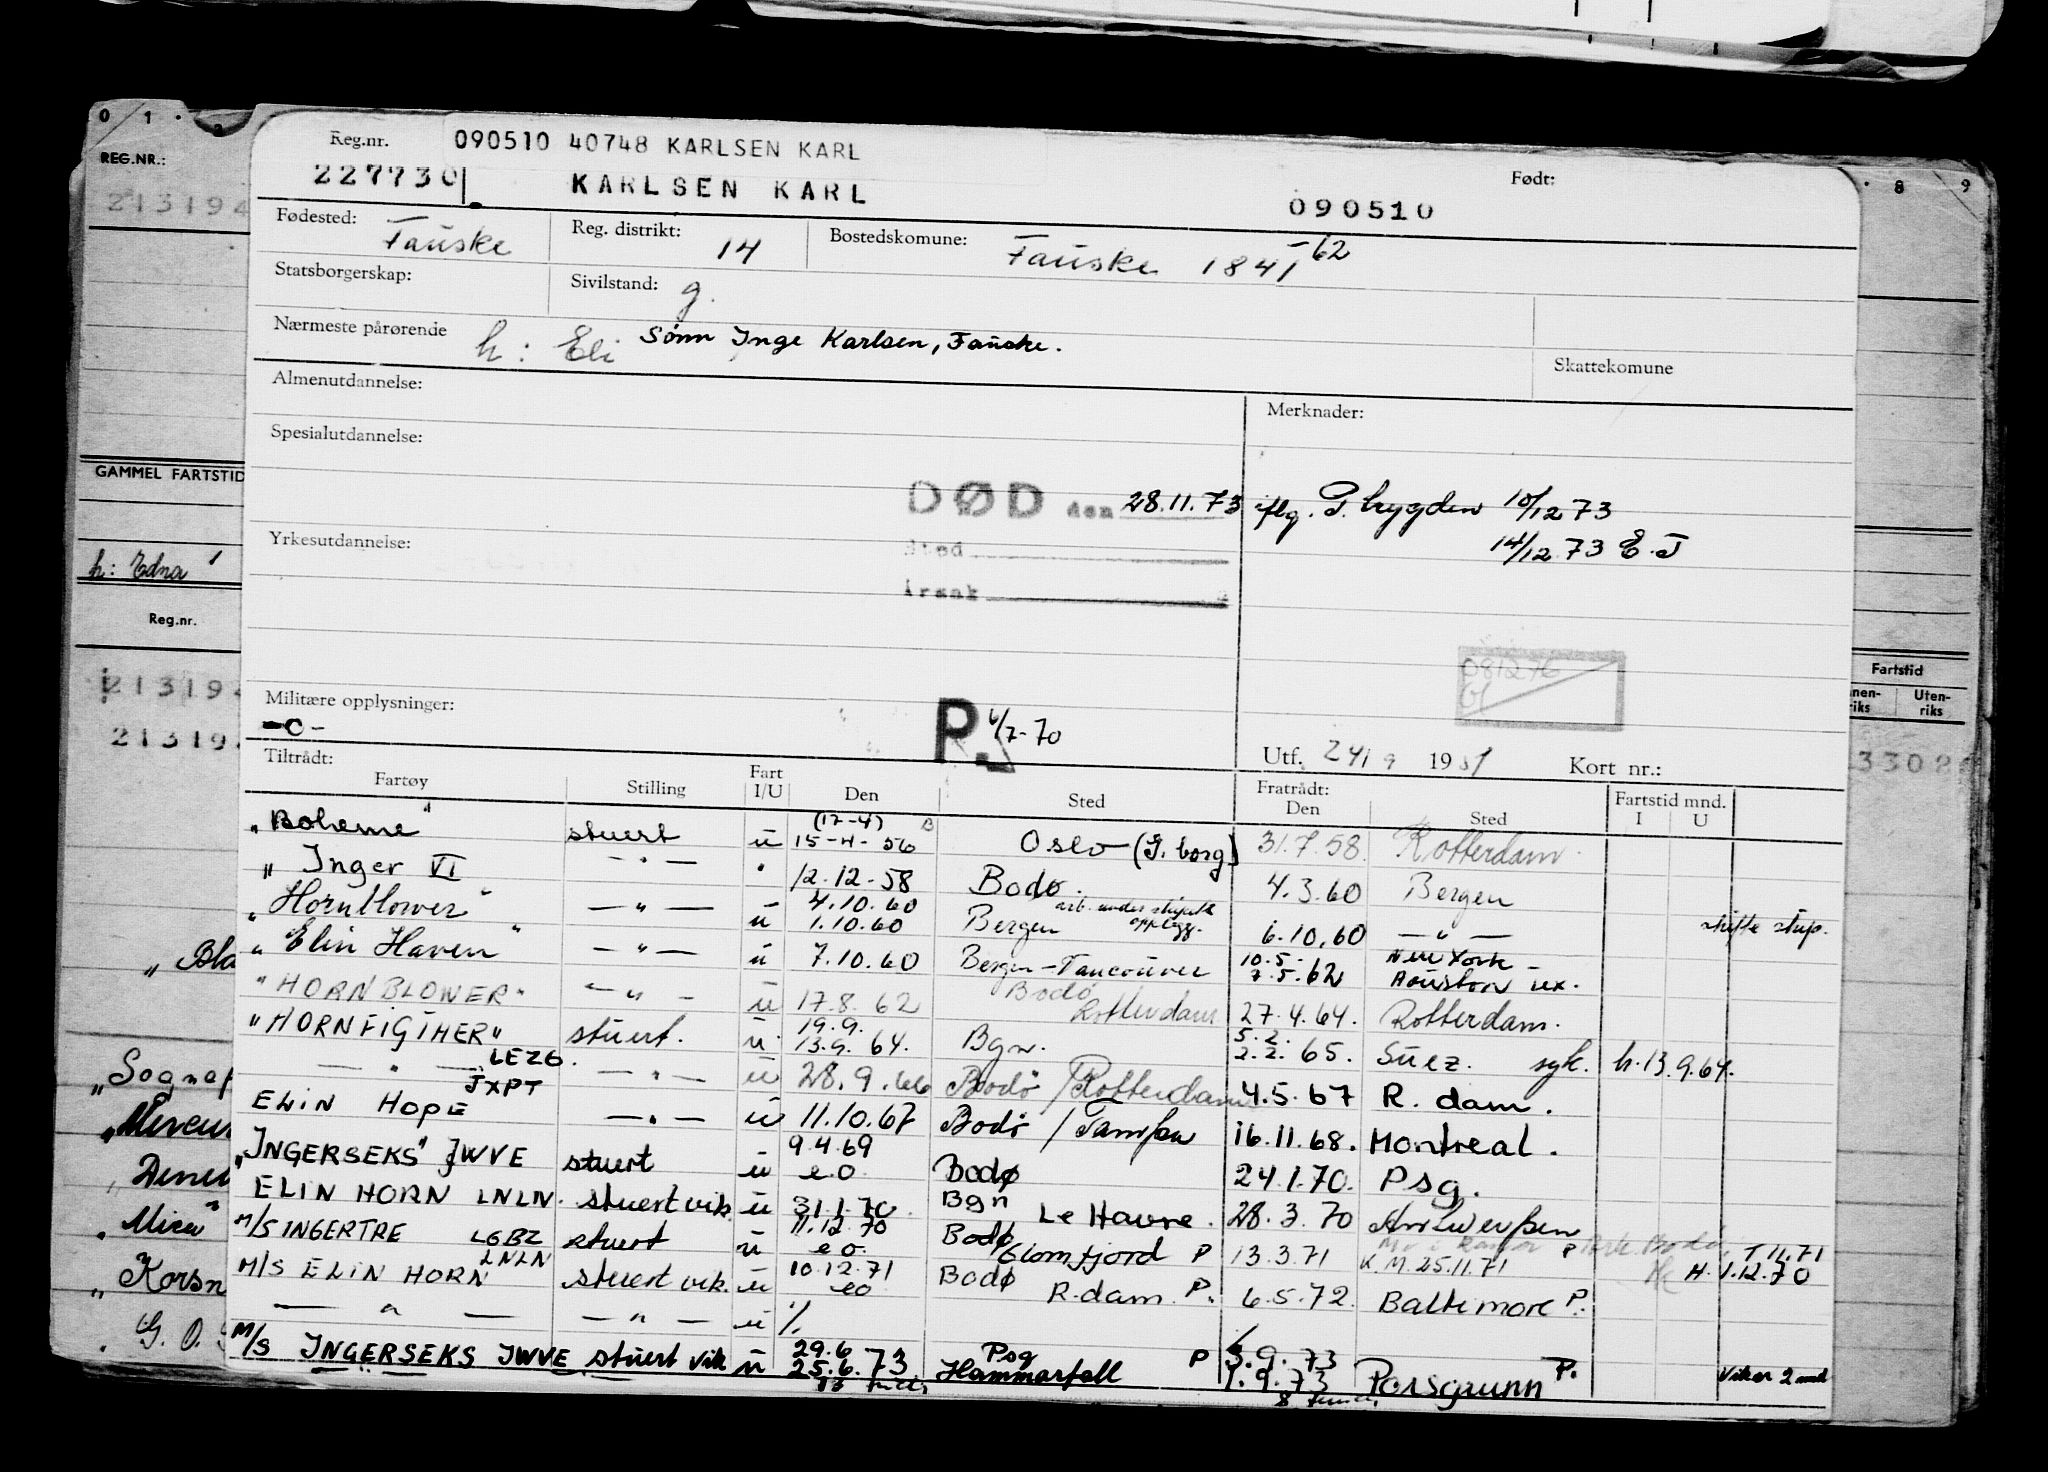 0 1 · 2
REG.NR.:
213194
GAMMEL FARTSTID
h: Edna
Reg.nr.
213194
21319
Reg.nr. 090510 40748 KARLSEN KARL
227730 KARLSEN KARL
Født:
090510
Fødested: Fauske Reg. distrikt: 14 Bostedskomune: Fauske 1841 -62
Statsborgerskap: Sivilstand: g.
Nærmeste pårørende h: Eli Sønn Inge Karlsen, Fauske.
Skattekomune
Almenutdannelse:
Merknader:
Spesialutdannelse:
DØD den 28.11.73 iflg. T. trygden 10/12 73
14/12 73 E.J
Sted
Yrkesutdannelse:
Årsak
081276
Militære opplysninger:
-0-
P. 6/7-70
Utf. 24/9 1951 Kort nr.:
Tiltrådt:
Fartøy Stilling Fart I/U Den Sted Fratrådt: Den Sted Fartstid mnd. I U
"Boheme" stuert u (17-4) 15-4-56 Oslo (G.borg) 31.7.58 Rotterdam
" Inger VI — " — " 12.12-58 Bodø. 4.3.60 Bergen
"Hornblower" — " — u 4.10.60 1.10.60 Bergen arb. under skipets opplegg. 6.10.60 — " — skifte skip.
"Elin Haven" — " — u 7.10.60 Bergen-Vancouver 10.5. 7.5.62 New York Houston
"HORNBLOWER" — " — u 17.8.62 Bodø Rotterdam 27.4.64. Rotterdam.
"HORNFIGTHER" stuert. u 19.9. 13.9.64. Bgn. 5.2. 2.2.65. Suez. syk. h.13.9.64.
— " — LEZG. — " — u 28.9.66 Bodø/Rotterdam 4.5.67 R.dam.
ELIN HOPE JXPT — " — u 11.10.67 Bodø / Tampa 16.11.68. Montreal.
"INGERSEKS" JWVE stuert u 9.4.69 e.o. Bodø 24.1.70. Psg.
ELIN HORN LNLN. stuert vik. u 31.1.70. Bgn Le Havre. 28.3.70 Antwerpen
M/S INGERTRE LGBZ stuert u 11.12.70 e.o. Bodø Glomfjord P 13.3.71 K.M.25.11.71 T.11.71
H.1.12.70
M/S ELIN HORN LNLN stuert vik. u 10.12.71 eo Bodø R.dam. P. 6.5.72. Baltimore P.
— " — — " — u %
M/S INGERSEKS JWVE stuert vik u 29.6 25.6.73 Psg Hammarfall P 3.9.73 1.9.73 Porsgrunn P. Vikar 2 mnd
"Sognef
"Mercur
"Mica"
"Korsn
G. O.
· 8 9
Fartstid
nen-riks Uten-riks
3308